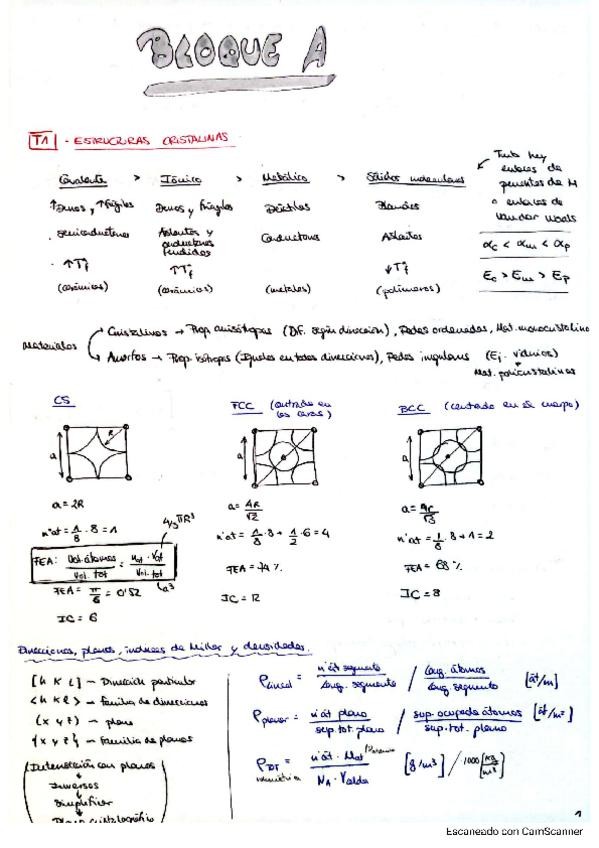 BLOQUE A
T1 - ESTRUCTURAS CRISTALINAS
Covalente > Iónico > Metálico > Sólidos moleculares
Tmb hay enlaces de puentes de H o enlaces de Van der Waals
↑Duros, ↑frágiles Duros y frágiles Dúctiles Blandos
Semiconductores Aislantes y conductores fundidos Conductores Aislantes
αc < αm < αp
↑Tf ↑↑Tf ↓Tf
Ec > Em > Ep
(cerámicos) (cerámicos) (metales) (polímeros)
Materiales
Cristalinos → Prop. anisótropas (Dif. según dirección), Redes ordenadas, Mat. monocristalino
Amorfos → Prop. isótropas (Iguales en todas direcciones), Redes irregulares (Ej. vidrios)
Mat. policristalinos
CS
a
R
a = 2R
nºat = 1/8 · 8 = 1
4/3 πR³
FEA: Vol. átomos / Vol. tot = nat · Vat / Vol. tot
a³
FEA = π/6 = 0'52
IC = 6
FCC (centrado en las caras)
a
a = 4R/√2
nºat = 1/8 · 8 + 1/2 · 6 = 4
FEA = 74 %
IC = 12
BCC (centrado en el cuerpo)
a
a = 4R/√3
nºat = 1/8 · 8 + 1 = 2
FEA = 68 %
IC = 8
Direcciones, planos, índices de Miller y densidades.
[h k l] - Dirección particular
<h k l> - Familia de direcciones
(x y z) - plano
{x y z} - Familia de planos
Intersección con planos
↓
Inversos
↓
Simplificar
↓
Plano cristalográfico
ρlineal = nºat segmento / Long. segmento / Long. átomos / Long segmento [át/m]
ρplanar = nºát plano / sup. tot. plano / sup. ocupada átomos / sup. tot. plano [át/m²]
ρTOT volumétrica = nºát · Mat / NA · Vcelda [g/m³] / 1000 [kg/m³]
1
Escaneado con CamScanner